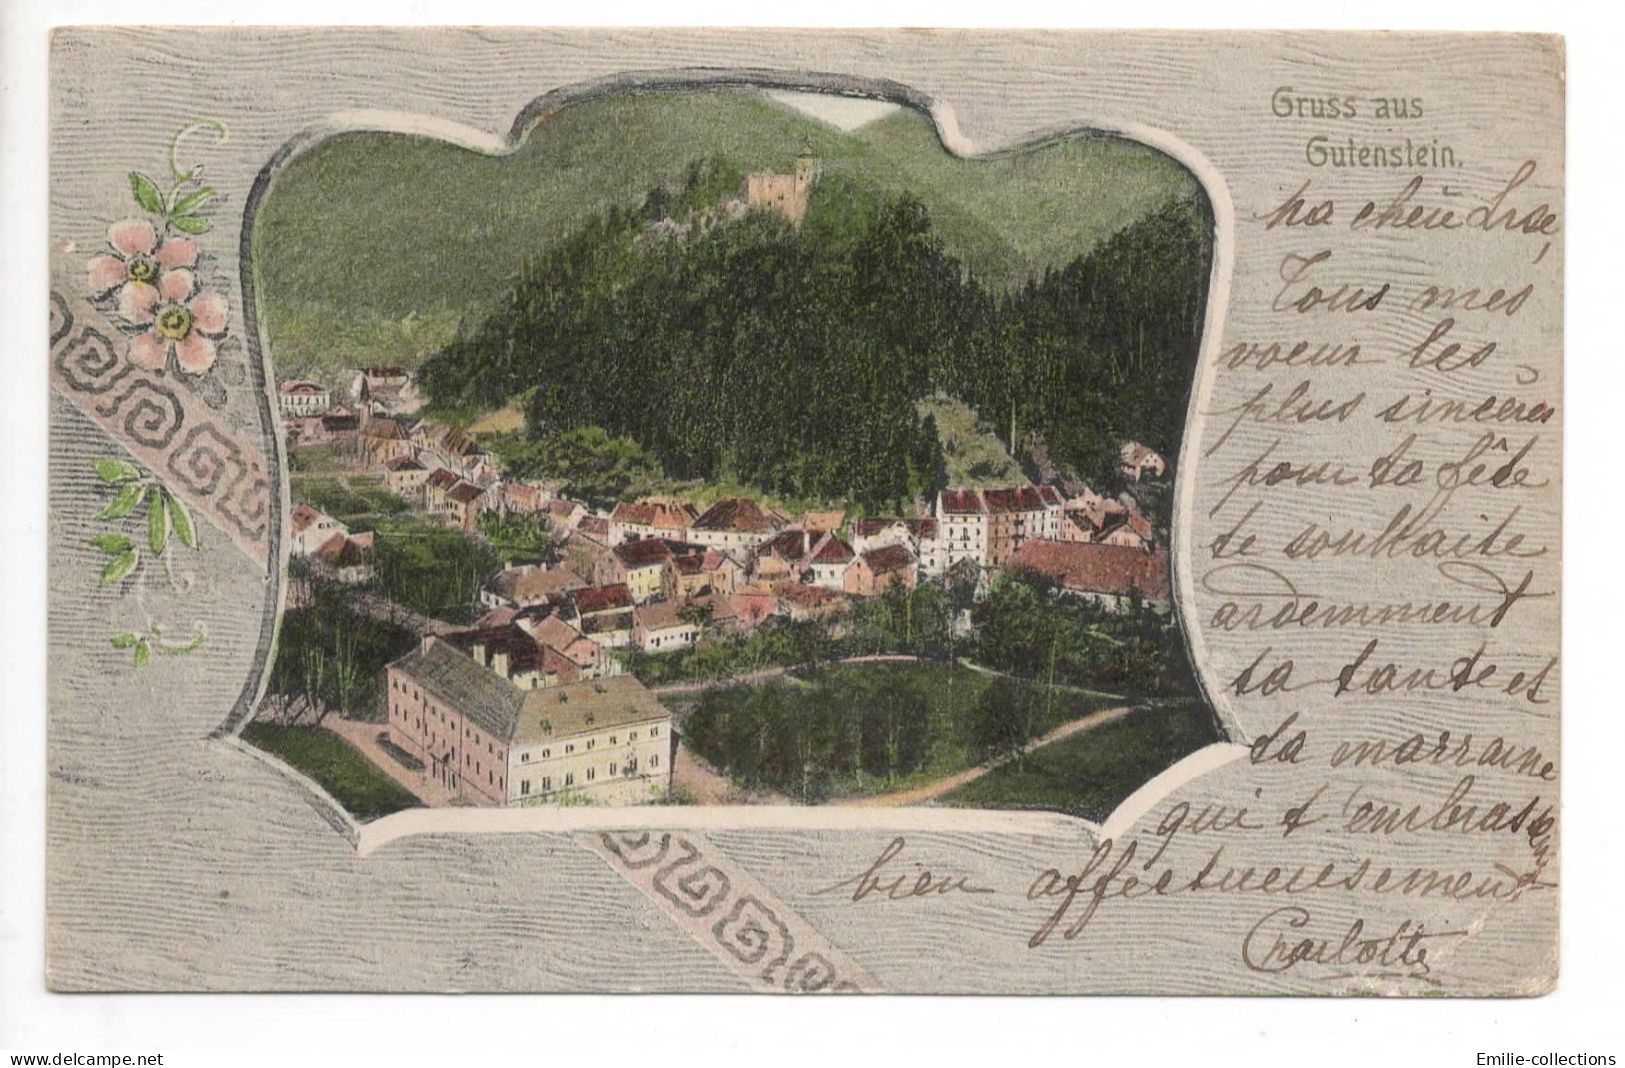 Gruss aus
Gutenstein.
Ma chèù Lise,
Tous mes
voeux les
plus sincères
pour ta fête
te souhaite
ardemment
ta tante et
ta marraine
qui t'embrasse
bien affectueusement
Charlotte
www.delcampe.net
Emilie-collections